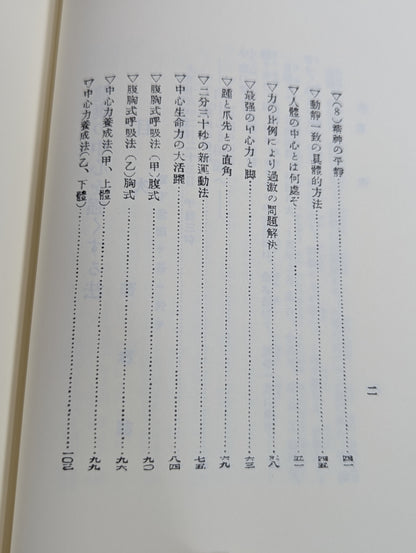 ▽(8)精神の平靜……四一
▽動靜一致の具體的方法……四五
▽人體の中心とは何處ぞ……五一
▽力の比例により過激の問題解決……五八
▽最强の中心力と脚……六三
▽踵と爪先との直角……六九
▽二分三十秒の新運動法……七五
▽中心生命力の大活躍……八四
▽腹胸式呼吸法(甲)腹式……九〇
▽腹胸式呼吸法(乙)胸式……九六
▽中心力養成法(甲、上體)……九九
▽中心力養成法(乙、下體)……一〇
二